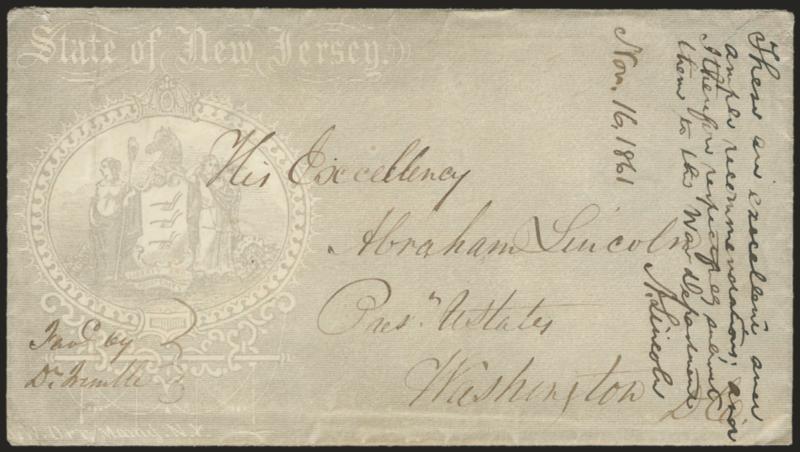 State of New Jersey.
His Excellency
Abraham Lincoln
Pres.t U States
Washington D.C.
Favd by
Dr Trimble
These are excellent and
ample recommendations; and
I therefore respectfully submit
them to the War Department
A. Lincoln
Nov. 16, 1861